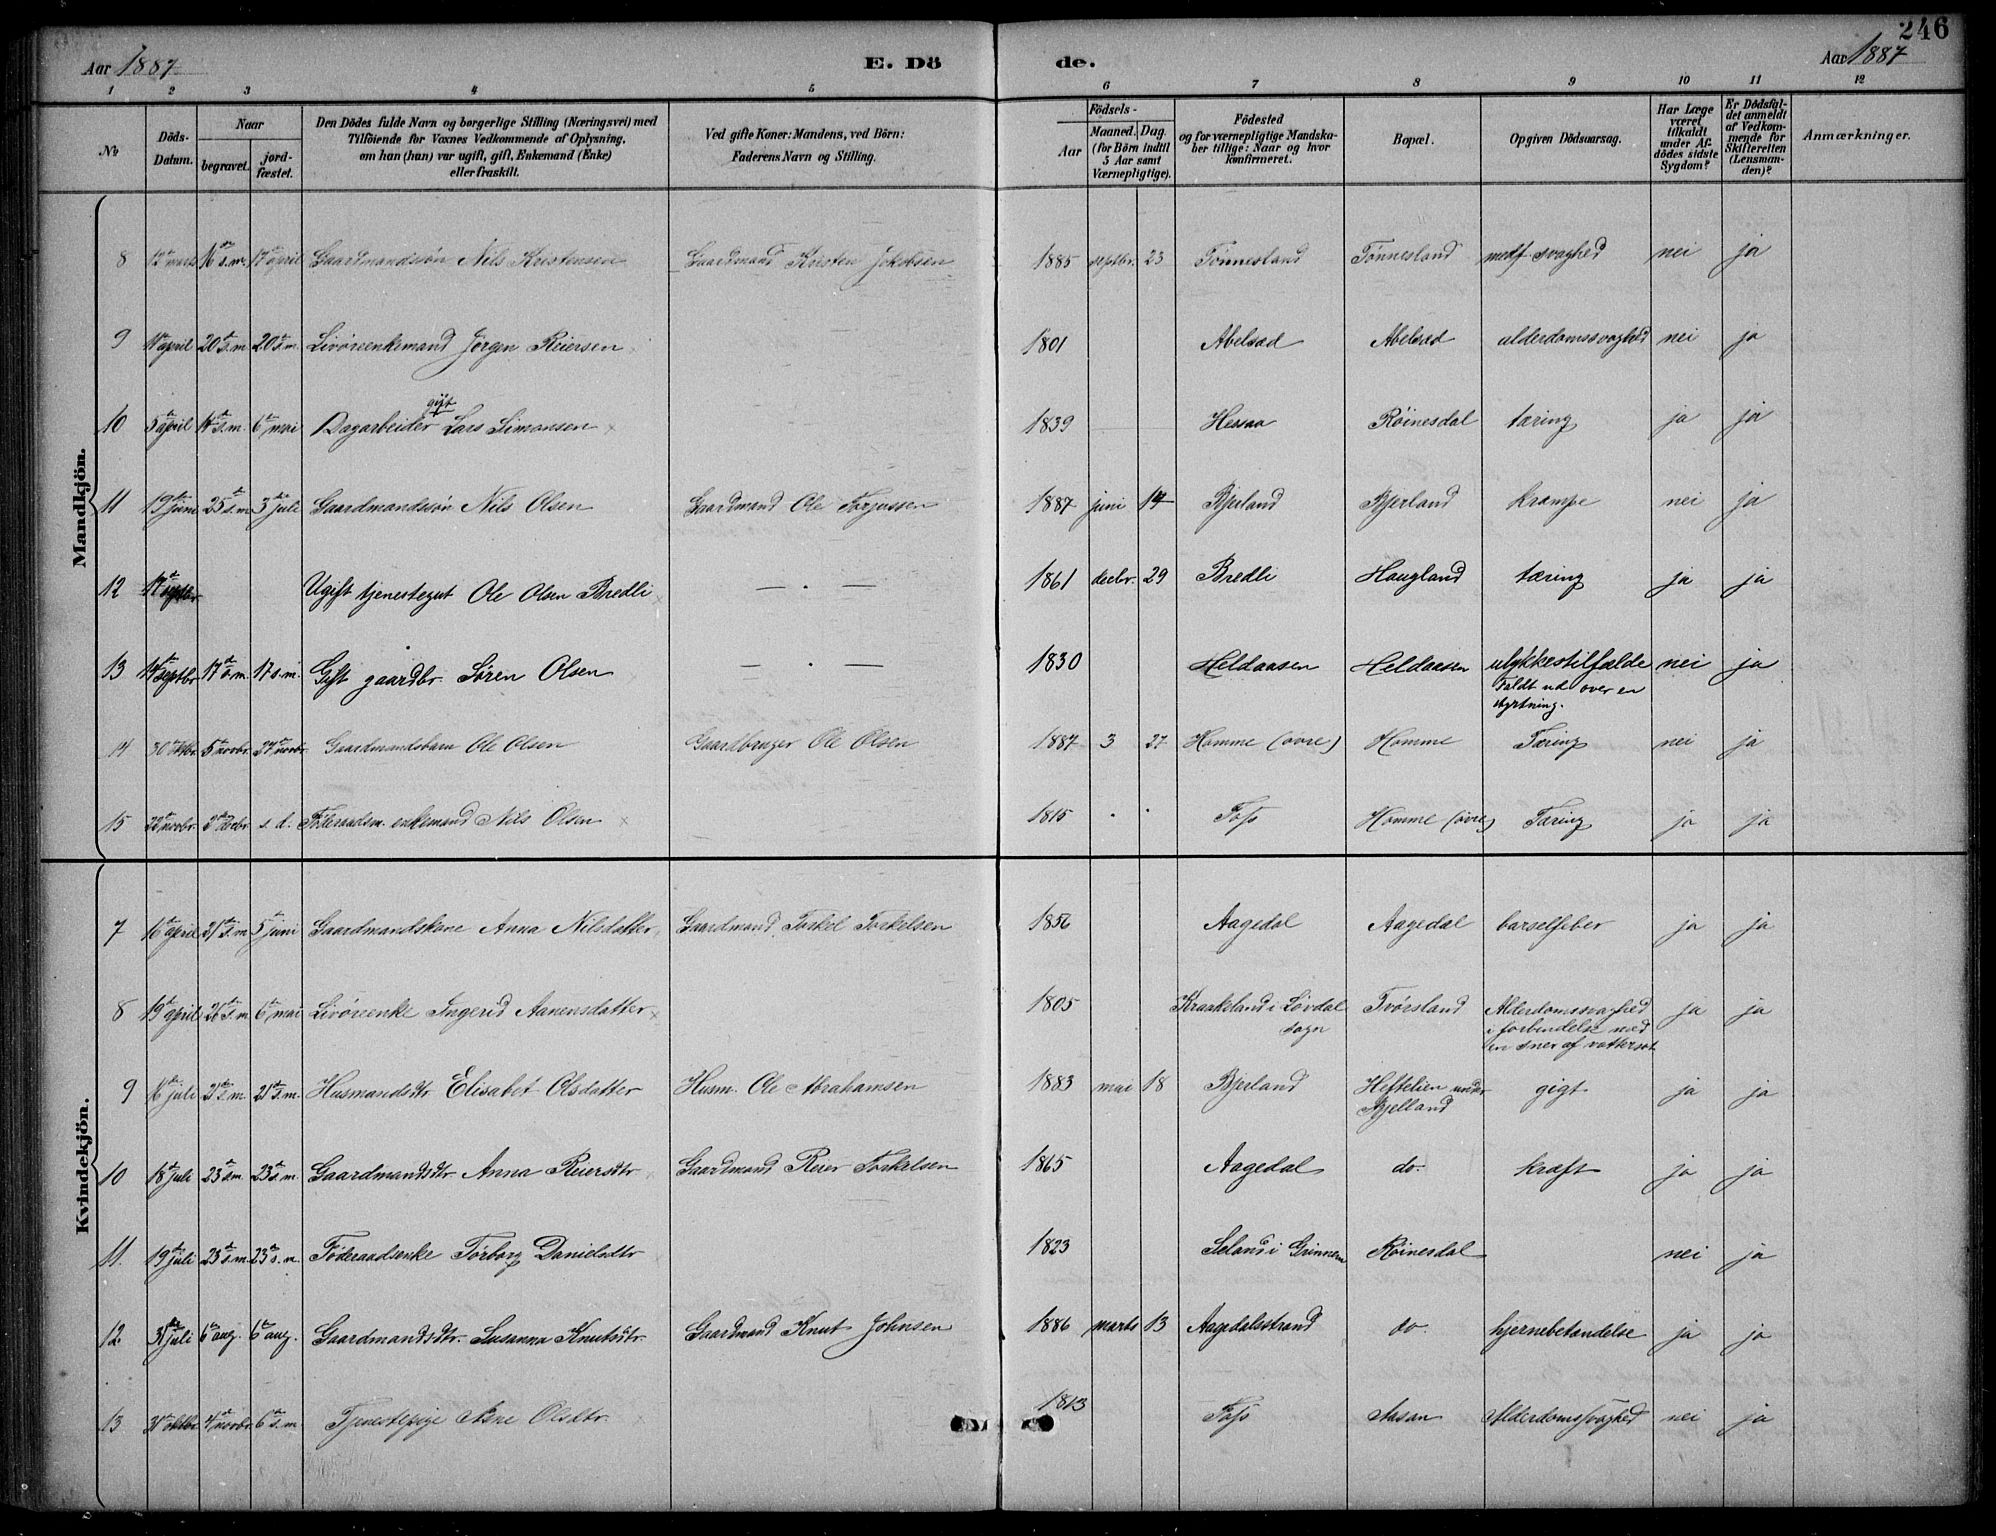 246
Aar 1887 E. Dö de. Aar 1887
1 2 3 4 5 6 7 8 9 10 11 12
No Döds-Datum. Naar begravet. jordfæstet. Den Dödes fulde Navn og borgerlige Stilling (Næringsvei) med Tilföiende for Voxnes Vedkommende af Oplysning, om han (hun) var ugift, gift, Enkemand (Enke) eller fraskilt. Ved gifte Koner: Mandens, ved Börn: Faderens Navn og Stilling. Födsels- Aar Maaned. Dag. (for Börn indtil 5 Aar samt Værnepligtige). Födested og for værnepligtige Mandskaber tillige: Naar og hvor konfirmeret. Bopæl. Opgiven Dödsaarsag. Har Læge været tilkaldt under Afdödes sidste Sygdom? Er Dödsfaldet anmeldt af Vedkommende for Skifteretten (Lensmanden)? Anmærkninger.
Mandkjön.
8 12te marts 16de s.m. 17de april Gaardmandssøn Nils Kristensen Gaardmand Kristen Jakobsen 1885 septbr. 23 Tønnesland Tønnesland medf. svaghed nei ja
9 april 20de s.m. 20 s.m. Livøreenkemand Jørgen Reiersen 1801 Abelsæd Abelsæd alderdomssvaghed nei ja
10 5te april 14de s.m. 6te mai Dagarbeider gift Lars Simonsen 1839 Hessaa Røinesdal tæring ja ja
11 19de juni 25de s.m. 3die juli Gaardmandssøn Nils Olsen Gaardmand Ole Torjussen 1887 juni 14 Bjerland Bjerland krampe nei ja
12 17de septbr Ugift tjenestegut Ole Olsen Bredli — . — 1861 decbr. 29 Bredli Haugland tæring ja ja
13 14de septbr 17de s.m. 17 s.m. Gift gaardbr. Søren Olsen — . — 1830 Heldaasen Heldaasen ulykkestilfælde nei ja
Faldt ud over en styrtning.
14 30te oktbr 5te novbr 27de novbr Gaardmandsbarn Ole Olsen Gaardbruger Ole Olsen 1887 3 27 Homme (øvre) Homme Tæring nei ja
15 22 novbr 2den decbr s. d. Føderaadsm. enkemand Nils Olsen 1815 Foss Homme (øvre) Tæring ja ja
Kvindekjön.
7 16de april 21de s.m. 5te juni Gaardmandskone Anna Nilsdatter Gaardmand Torkel Torkelsen 1856 Aagedal Aagedal barselfeber ja ja
8 19de april 26de s.m. 6te mai Livøreenke Ingerid Aanensdatter 1805 Kraakeland i Løvdal sogn Tvørsland Alderdomssvaghed i forbindelse med en sner af vattersot ja ja
9 16de juli 21de s.m. 21de s.m. Husmandsdtr Elisabet Olsdatter Husm. Ole Abrahamsen 1883 mai 18 Bjerland Heftelien under Bjelland gigt ja ja
10 18de juli 23de s.m. 23de s.m. Gaardmandsdtr. Anna Reiersdtr Gaardmand Reier Torkelsen 1865 Aagedal do. kræft ja ja
11. 19de juli 23de s.m. 23de s.m. Føderaadsenke Tørborg Danielsdtr 1823 Seland i Grinnem Røinesdal nei ja
12 31te juli 6te aug. 6te aug. Gaardmandsdtr. Susanna Knutsdtr. Gaardmand Knut Johnsen 1886 marts 13 Aagedalsstrand do. hjernebetændelse ja ja
13 31te oktbr 4de novbr 6te s.m. Tjenestepige Aane Olsdtr. 1813 Foss Aasan Alderdomssvaghed nei ja